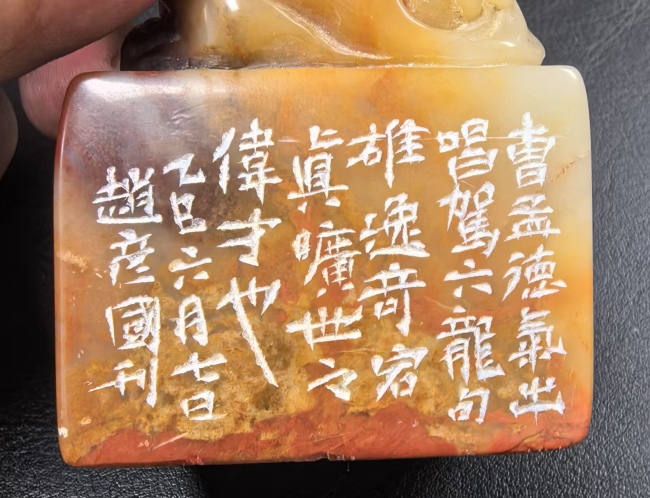 曹孟德氣出
唱駕六龍句
雄逸奇宕
眞曠世之
偉才也
乙巳六月七日
趙彦國刊